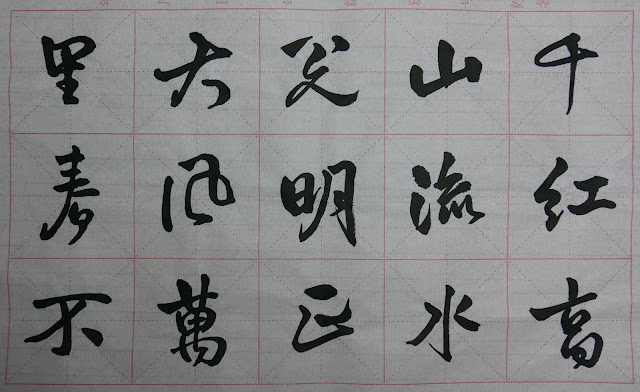 千红高
山流水
公明正
大风萬
里春不